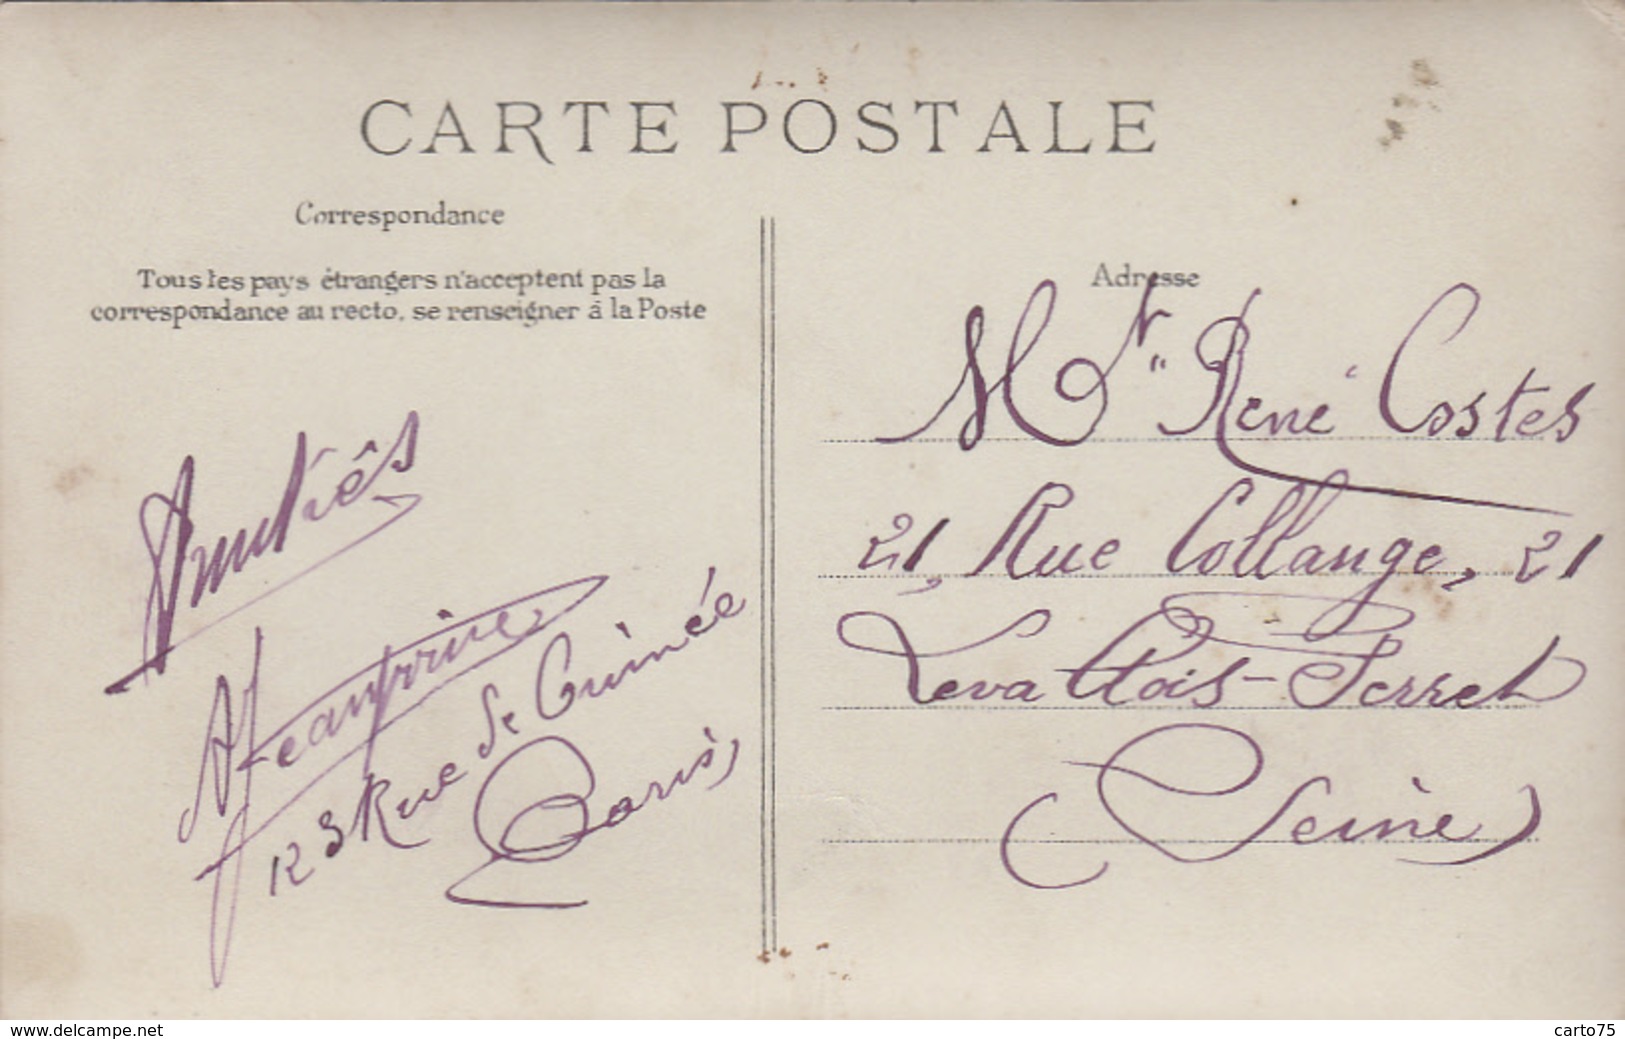 CARTE POSTALE
Correspondance
Tous les pays étrangers n'acceptent pas la
correspondance au recto, se renseigner à la Poste
Amitiés
123 Rue de Guinée
Paris
Adresse
Mr René Costes
21, Rue Collange, 21
Levallois-Perret
(Seine)
www.delcampe.net
carto75